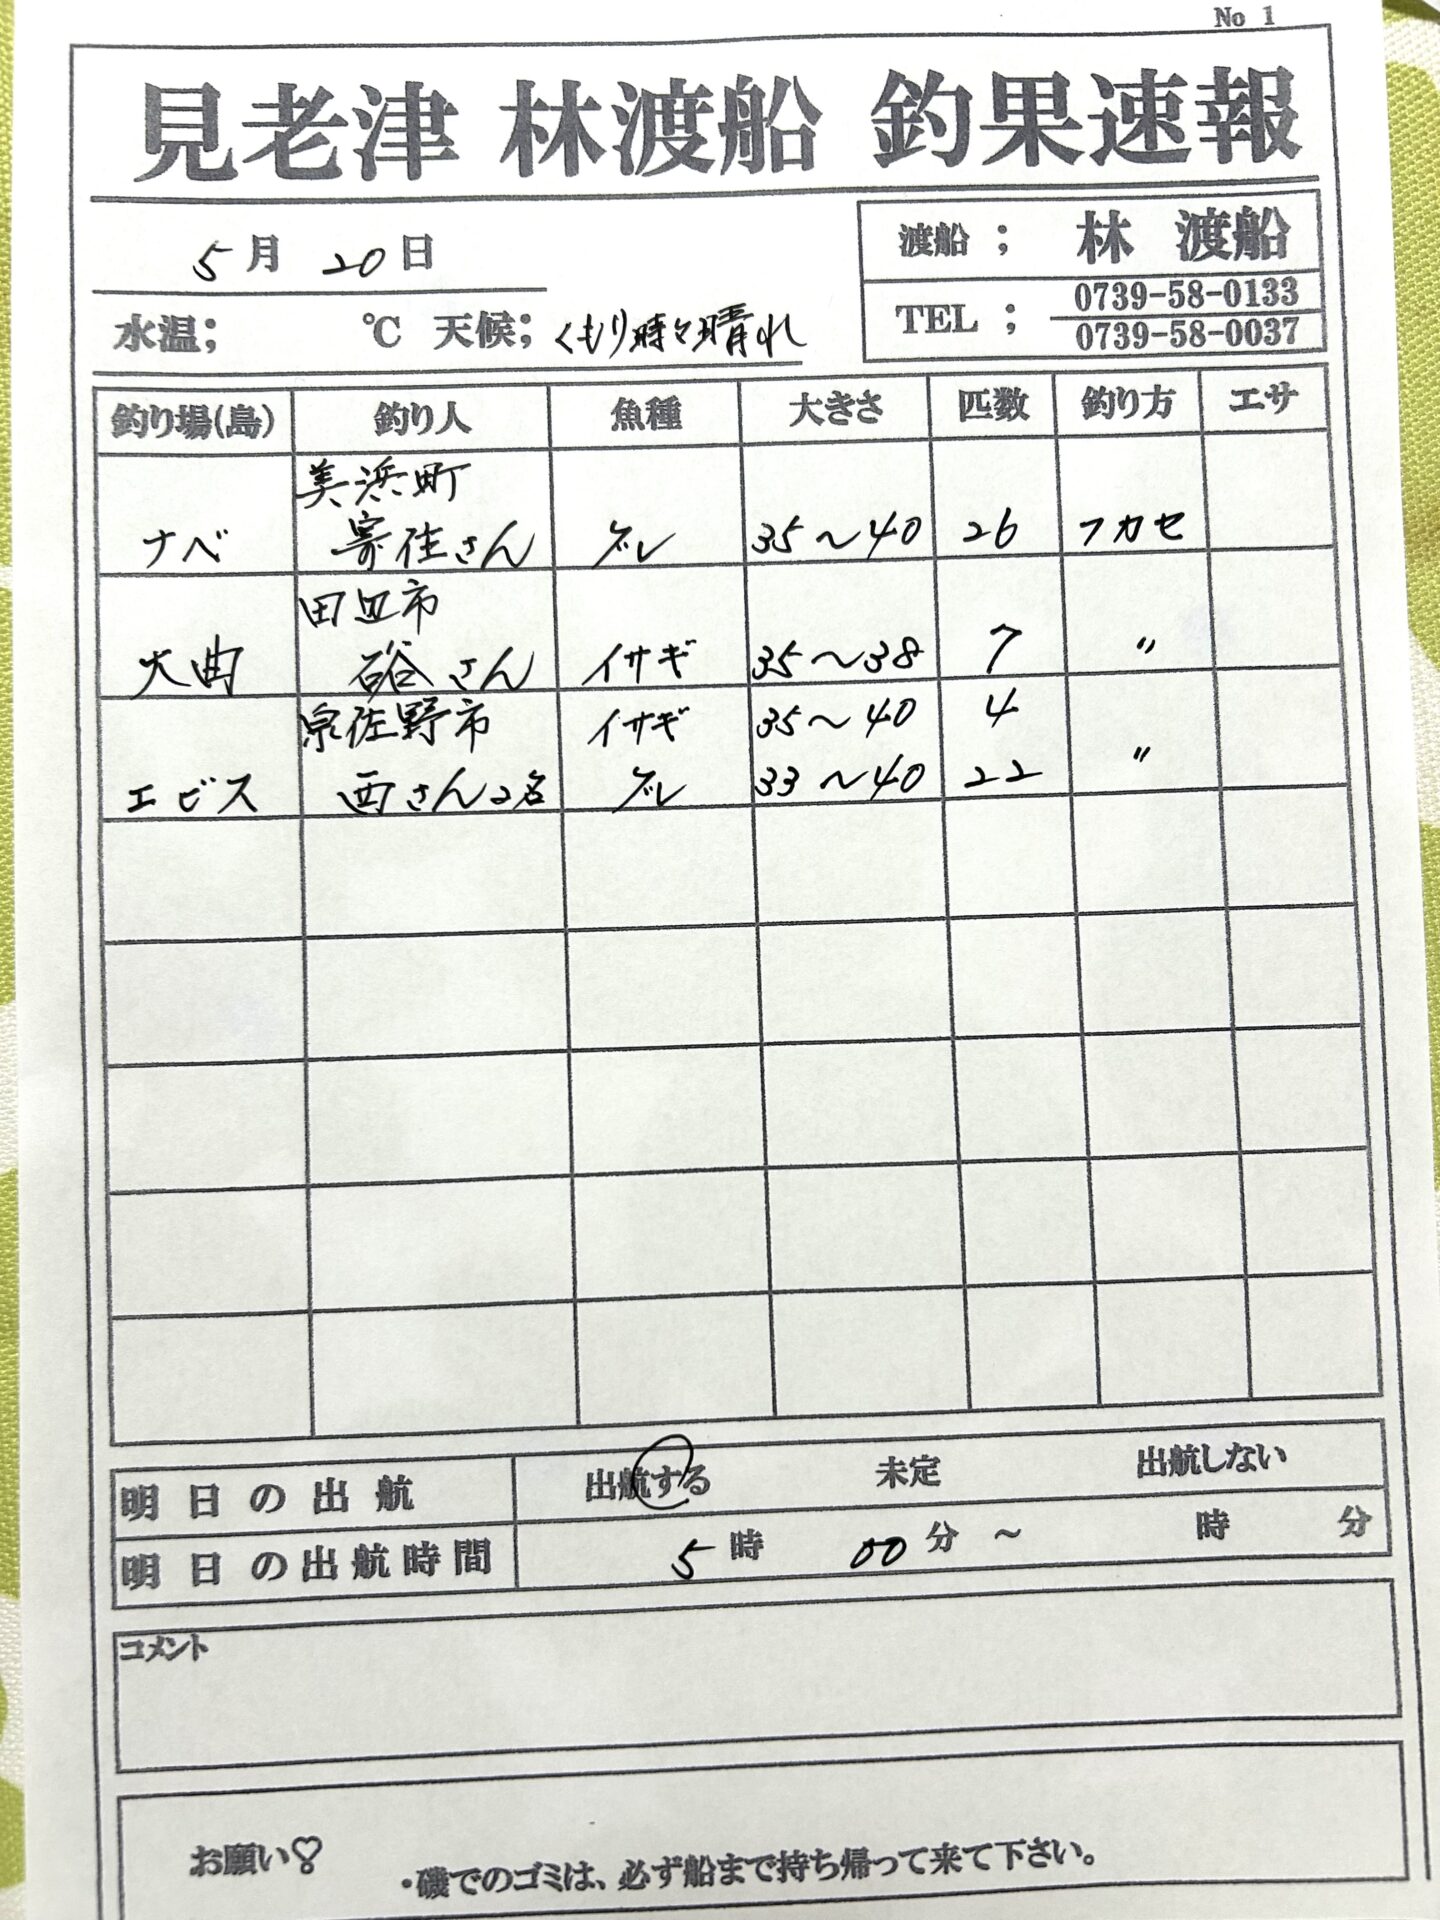 No 1
見老津 林渡船 釣果速報
5月 20日
渡船 ; 林 渡船
水温; ℃ 天候; くもり時々晴れ
TEL ; 0739-58-0133
0739-58-0037
釣り場(島) 釣り人 魚種 大きさ 匹数 釣り方 エサ
美浜町
ナベ 寄住さん グレ 35〜40 26 フカセ
田辺市
大曲 硲さん イサギ 35〜38 7 〃
泉佐野市 イサギ 35〜40 4
エビス 西さん2名 グレ 33〜40 22 〃
明日の出航 出航する 未定 出航しない
明日の出航時間 5時 00分 ~ 時 分
コメント
お願い♡
・磯でのゴミは、必ず船まで持ち帰って来て下さい。